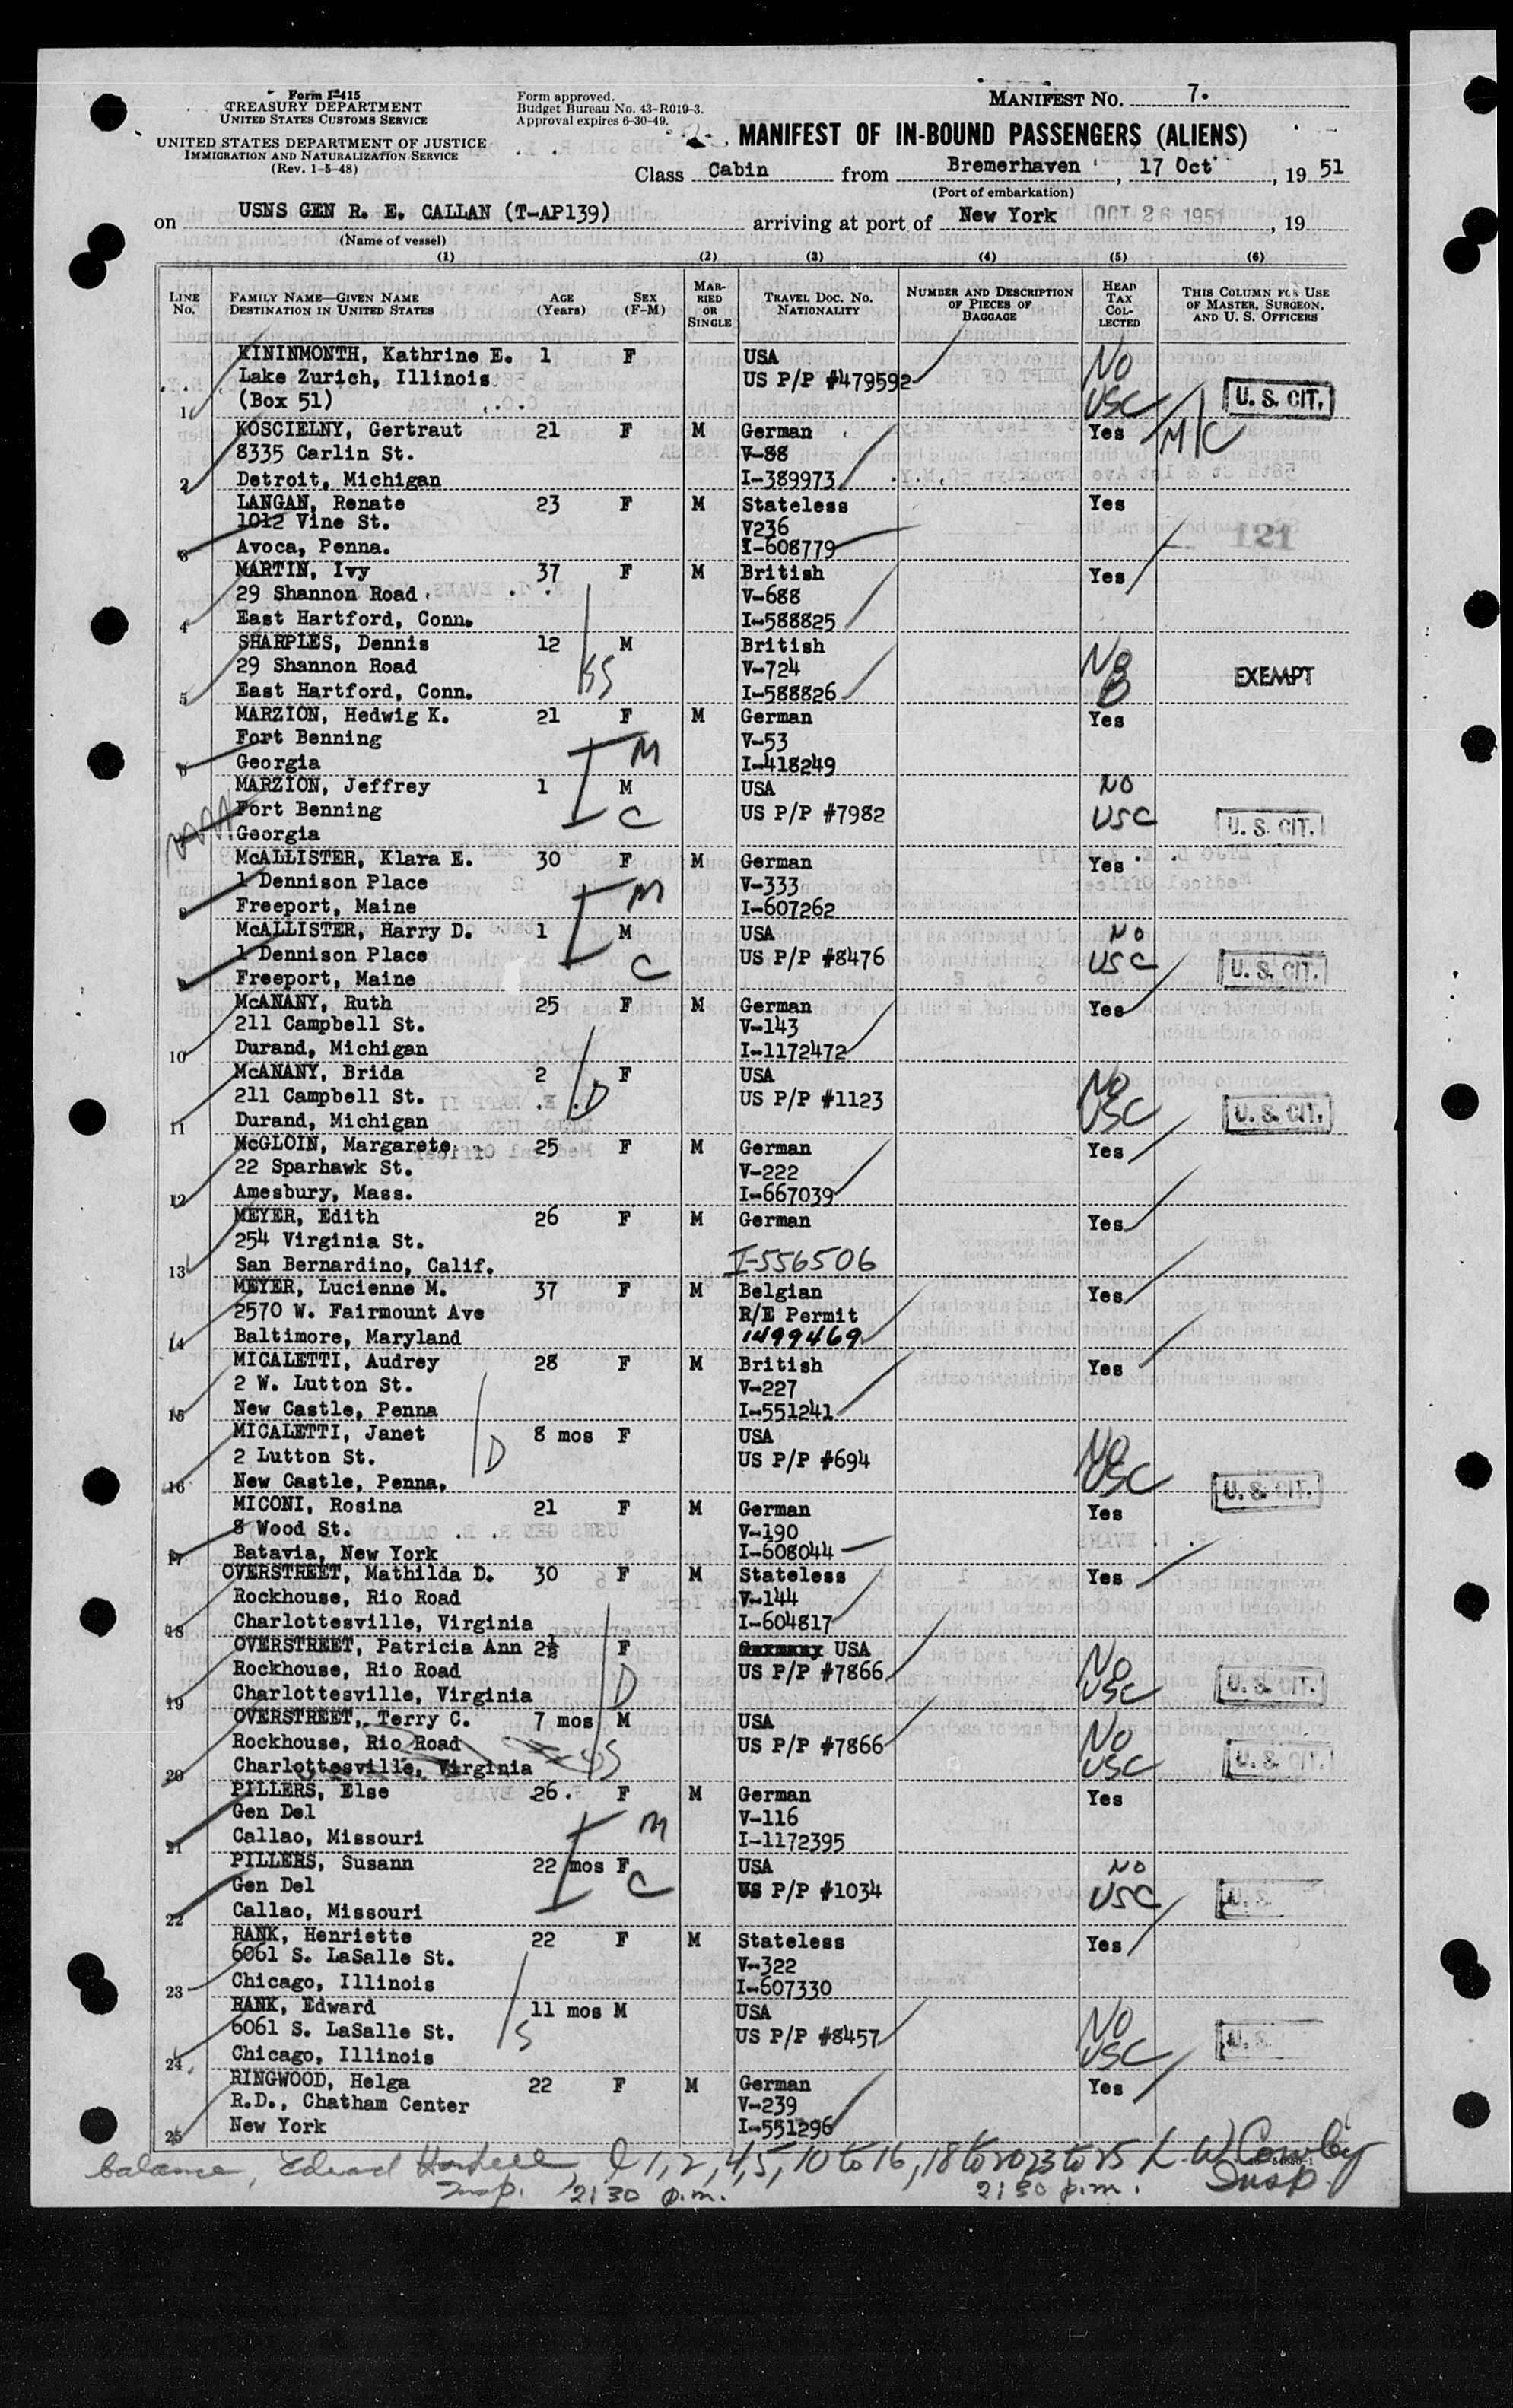 Form I-415
TREASURY DEPARTMENT
UNITED STATES CUSTOMS SERVICE
UNITED STATES DEPARTMENT OF JUSTICE
IMMIGRATION AND NATURALIZATION SERVICE
(Rev. 1-5-48)
Form approved.
Budget Bureau No. 43-R019-3.
Approval expires 6-30-49.
MANIFEST NO. 7.
MANIFEST OF IN-BOUND PASSENGERS (ALIENS)
Class Cabin from Bremerhaven, 17 Oct, 19 51
(Port of embarkation)
on USNS GEN R. E. CALLAN (T-AP139) arriving at port of New York OCT 26 1951, 19
(Name of vessel)
(1) (2) (3) (4) (5) (6)
LINE NO. FAMILY NAME—GIVEN NAME DESTINATION IN UNITED STATES AGE (Years) SEX (F-M) MARRIED OR SINGLE TRAVEL DOC. NO. NATIONALITY NUMBER AND DESCRIPTION OF PIECES OF BAGGAGE HEAD TAX COLLECTED THIS COLUMN FOR USE OF MASTER, SURGEON, AND U. S. OFFICERS
KININMONTH, Kathrine E. 1 F USA No
Lake Zurich, Illinois US P/P #479592
1 (Box 51) USC U. S. CIT.
KOSCIELNY, Gertraut 21 F M German Yes M/C
8335 Carlin St. V-88
2 Detroit, Michigan I-389973
LANGAN, Renate 23 F M Stateless Yes
1012 Vine St. V236
3 Avoca, Penna. I-608779
MARTIN, Ivy 37 F M British Yes
29 Shannon Road V-688
4 East Hartford, Conn. I-588825
SHARPLES, Dennis 12 M British No
29 Shannon Road V-724 EXEMPT
5 East Hartford, Conn. I-588826
MARZION, Hedwig K. 21 F M German Yes
Fort Benning V-53 M
6 Georgia I-418249
MARZION, Jeffrey 1 M USA NO
Fort Benning C US P/P #7982 USC U. S. CIT.
Georgia
McALLISTER, Klara E. 30 F M German Yes
1 Dennison Place M V-333
8 Freeport, Maine I-607262
McALLISTER, Harry D. 1 M USA NO
1 Dennison Place US P/P #8476 USC
9 Freeport, Maine C U. S. CIT.
McANANY, Ruth 25 F M German Yes
211 Campbell St. V-143
10 Durand, Michigan I-1172472
McANANY, Brida 2 F USA No
211 Campbell St. D US P/P #1123 USC U. S. CIT.
11 Durand, Michigan
McGLOIN, Margarete 25 F M German Yes
22 Sparhawk St. V-222
12 Amesbury, Mass. I-667039
MEYER, Edith 26 F M German Yes
254 Virginia St.
13 San Bernardino, Calif. I-556506
MEYER, Lucienne M. 37 F M Belgian Yes
2570 W. Fairmount Ave R/E Permit
14 Baltimore, Maryland 1499469
MICALETTI, Audrey 28 F M British Yes
2 W. Lutton St. V-227
15 New Castle, Penna I-551241
MICALETTI, Janet 8 mos F USA No
2 Lutton St. D US P/P #694 USC
16 New Castle, Penna. U. S. CIT.
MICONI, Rosina 21 F M German Yes
8 Wood St. V-190
17 Batavia, New York I-608044
OVERSTREET, Mathilda D. 30 F M Stateless Yes
Rockhouse, Rio Road V-144
18 Charlottesville, Virginia I-604817
OVERSTREET, Patricia Ann 2½ F Germany USA No
Rockhouse, Rio Road US P/P #7866
19 Charlottesville, Virginia D USC U. S. CIT.
OVERSTREET, Terry C. 7 mos M USA No
Rockhouse, Rio Road US P/P #7866
20 Charlottesville, Virginia S USC U. S. CIT.
PILLERS, Else 26 F M German Yes
Gen Del M V-116
21 Callao, Missouri I-1172395
PILLERS, Susann 22 mos F USA NO
Gen Del C US P/P #1034 USC U. S.
22 Callao, Missouri
RANK, Henriette 22 F M Stateless Yes
6061 S. LaSalle St. V-322
23 Chicago, Illinois I-607330
RANK, Edward 11 mos M USA No
6061 S. LaSalle St. S US P/P #8457 U. S.
24 Chicago, Illinois USC
RINGWOOD, Helga 22 F M German Yes
R.D., Chatham Center V-239
25 New York I-551296
balance, 1, 2, 4, 5, 10 to 16, 18 to 20 23 to 25 L. W. Cowley
Insp. 2:30 p.m. 2:30 p.m. Insp.